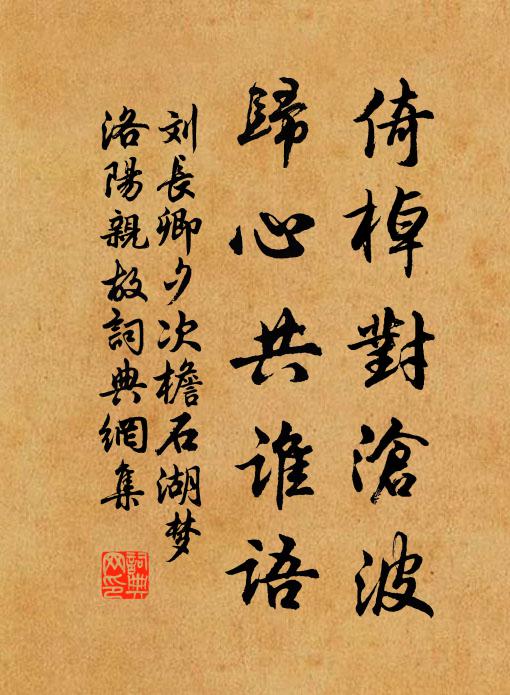 倚棹對滄波
歸心共誰語
刘長卿夕次檐石湖梦
洛陽親故詞典網集
詞典网印